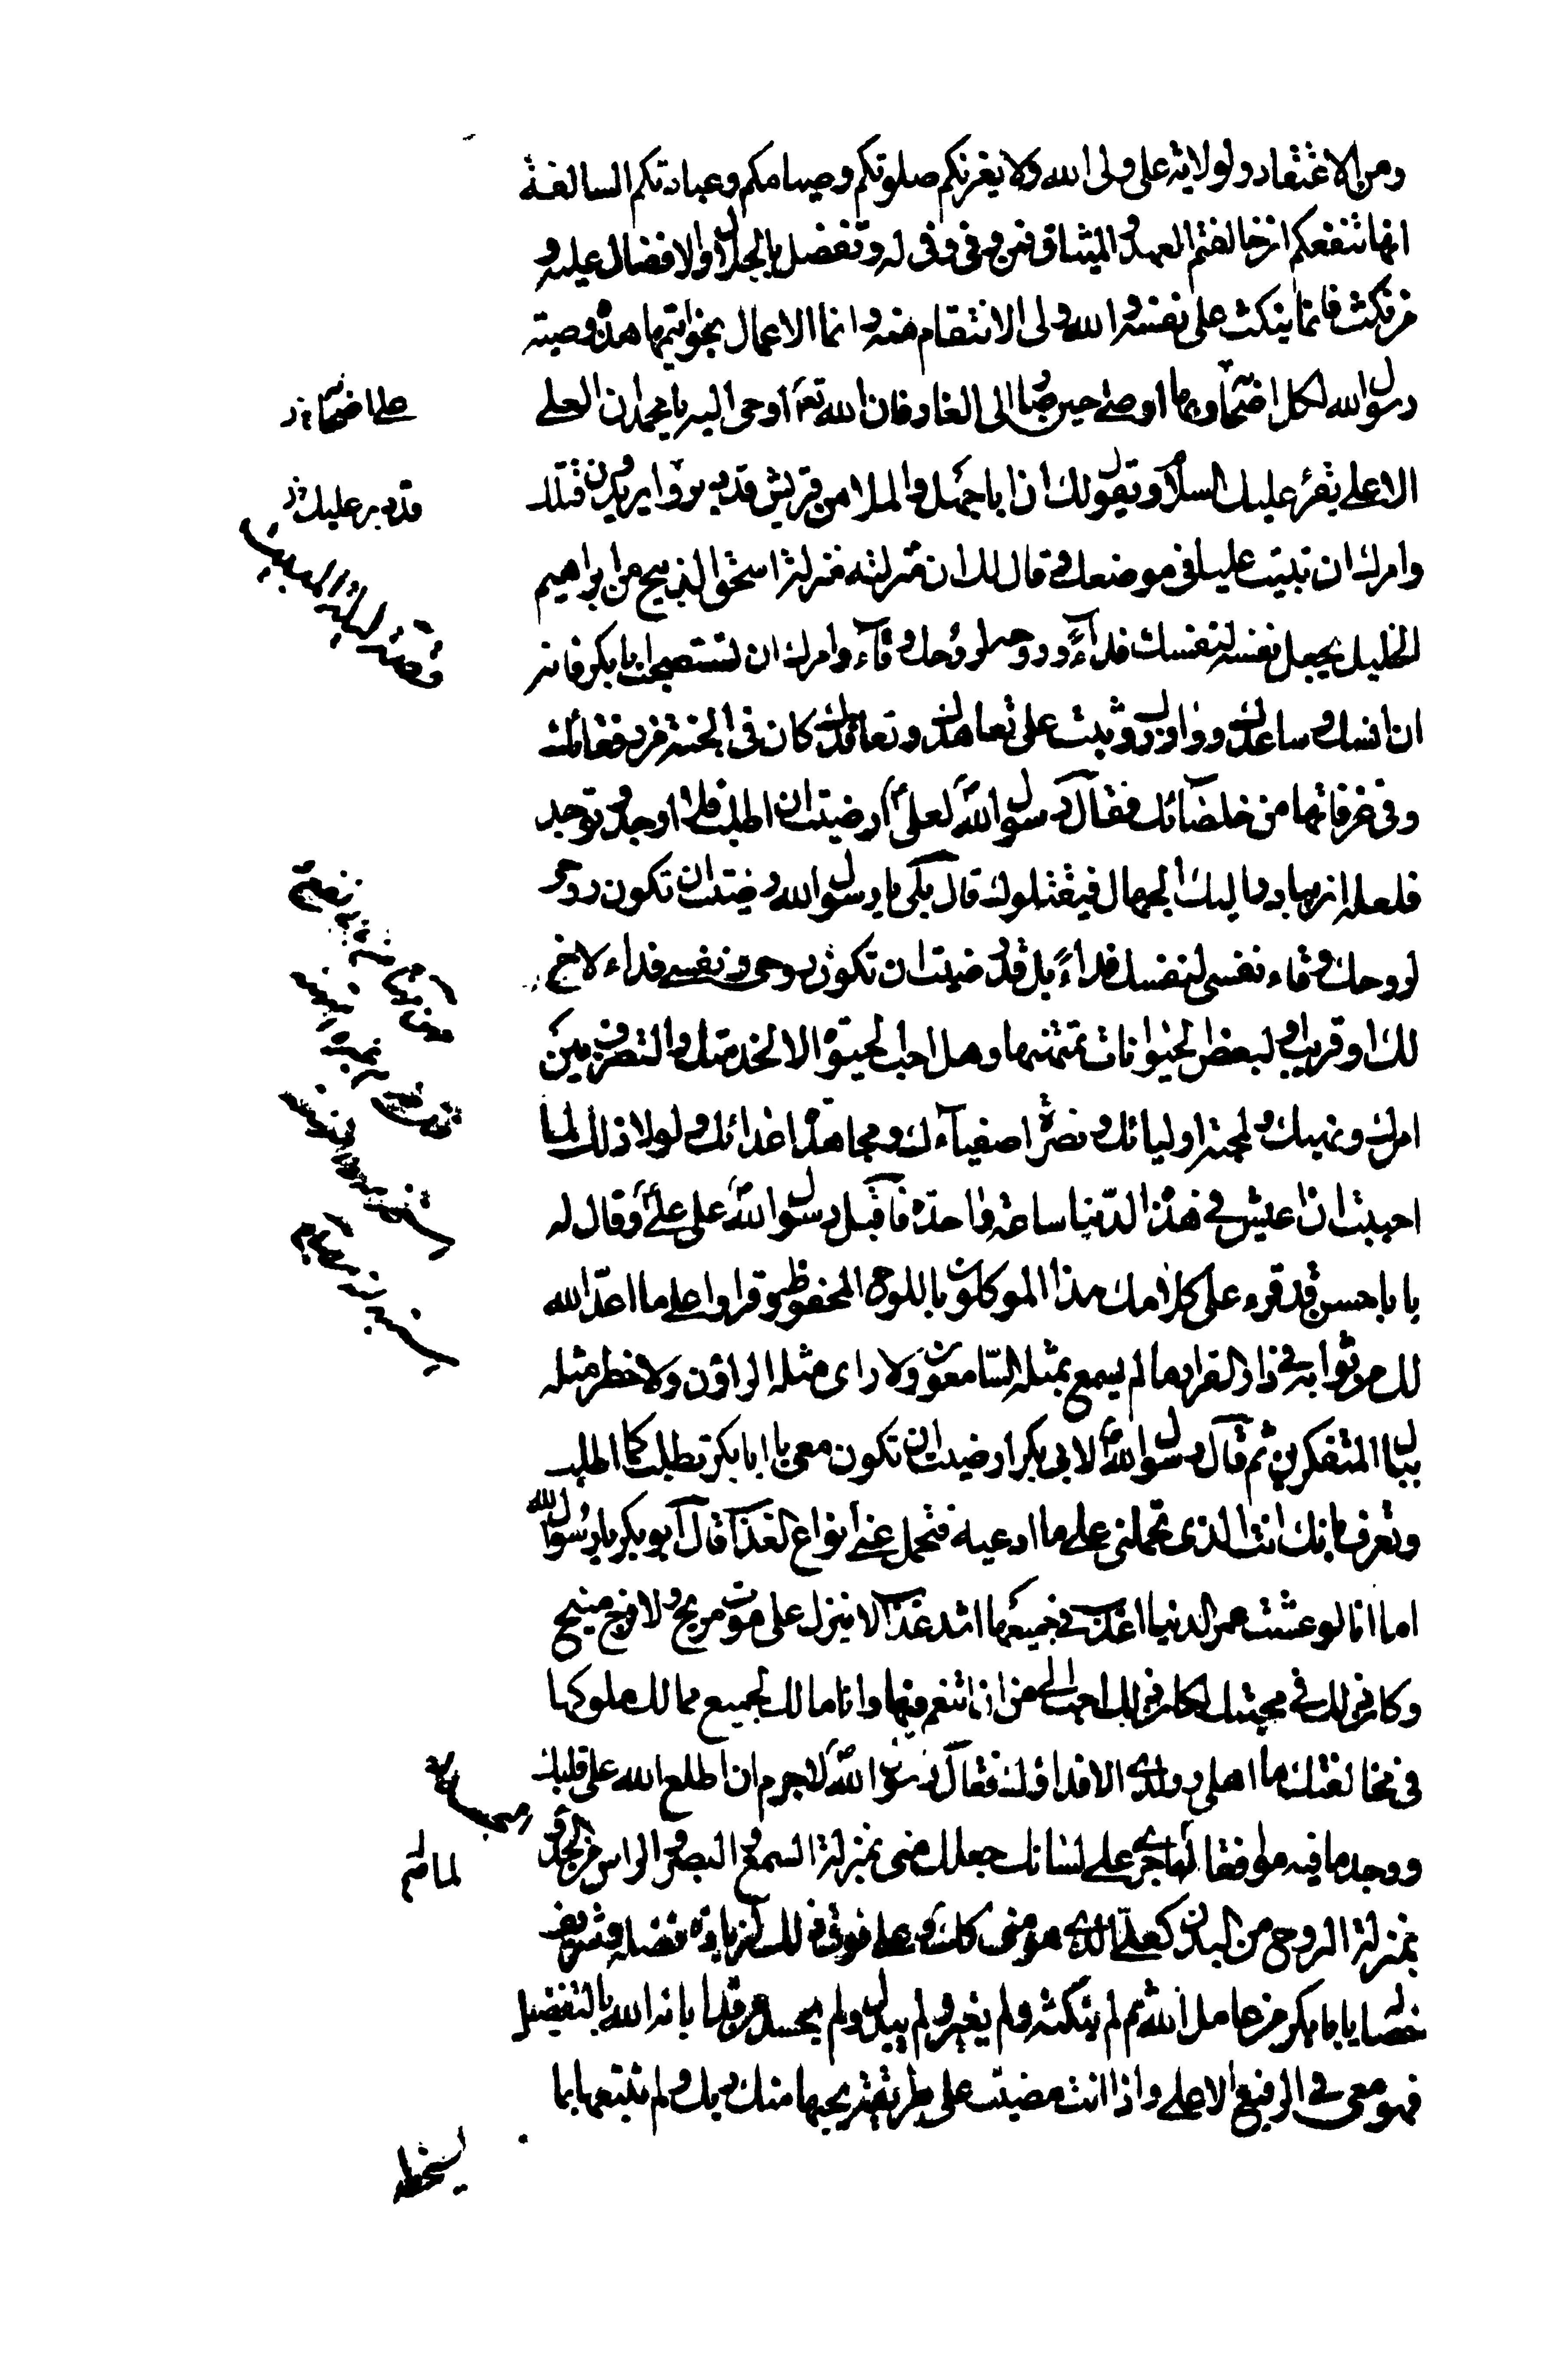 ومن الاعتقاد ولولاية على ولى الله ولا يغرنكم صلوتكم وصيامكم وعبادتكم السالفة
انها تنفعكم ان خالفتم العهد والميثاق فمن وفى وفى له وتفضل بالجلال والافضال عليه و
من نكث فانما ينكث على نفسه والله ولى الانتقام منه وانما الاعمال بخواتيمها هذه وصية
رسول الله لكل اصحابه وبها اوصى حين صار الى الغار فان الله تع اوحى اليه يا محمد ان العلى
الاعلى يقرء عليك السلام ويقول لك ان اباجهل والملا من قريش قد دبروا يريدون قتلك
وامرك ان تبيت عليا فى موضعك وقال لك ان منزلته منزلة اسحق الذبيح من ابراهيم
الخليل يجعل نفسه لنفسك فداء وروحه لروحك وقآء وامرك ان تستصحب ابابكر فانه
ان انسك وساعدك ووازرك وثبت على تعاهدك وتعاقدك كان فى الجنة من رفقائك
وفى غرفاتها من خلصائك فقال رسول الله لعلى ارضيت ان اطلب فلا اوجد وتوجد
فلعله ان يبادر اليك الجهال فيقتلوك قال بلى يا رسول الله رضيت ان تكون روحى
لروحك وقاء نفسى لنفسك فداء بل قد رضيت ان تكون روحى ونفسى فداء لاخ
لك او قريب او لبعض الحيوانات تمتهنها وهل احب الحيوة الا لخدمتك والتصرف بين
امرك ونهيك ولمحبة اوليائك ونصرة اصفيآءك ومجاهدة اعدائك ولولا ذلك لما
احببت ان اعيش فى هذه الدنيا ساعة واحدة فاقبل رسول الله على على وقال له
يا باحسن قد قرء على كلامك هذا الموكلون باللوح المحفوظ وقراوا على ما اعد الله
لك من ثوابه فى دار القرار ما لم يسمع بمثله السامعون ولا راى مثله الراؤن ولا خطر مثله
ببال المتفكرين ثم قال رسول الله لابى بكر ارضيت ان تكون معى يا ابابكر تطلب كما اطلب
وتعرف بانك انت الذى تحملنى على ما ادعيه فتحمل عنى انواع العذاب قال ابو بكر يا رسول الله
اما انا لو عشت عمر الدنيا اعذب فى جميعها اشد عذاب لا ينزل على موت مريح ولا فرج منيح
وكان ذلك فى محبتك لكان ذلك احب الى من ان اتنعم فيها وانا مالك لجميع ممالك ملوكها
فى مخالفتك ما اهلى وولدى الا فداؤك فقال رسول الله لا جرم ان اطلع الله على قلبك
ووجد ما فيه موافقا لما جرى على لسانك جعلك منى بمنزلة السمع والبصر والراس من الجسد و
بمنزلة الروح من البدن كعلى الذى هو منى كذلك وعلى فوق ذلك لزيادة فضله وشريف
خصاله يا بابكر من عاهد الله ثم لم ينكث ولم يغير ولم يبدل ولم يحسد من قد ابانه الله بالتفضيل
فهو معى فى الرفيع الاعلى واذا انت مضيت على طريقة يحبها منك ربك ولم تتبعها بما
يسخطه
لما تم